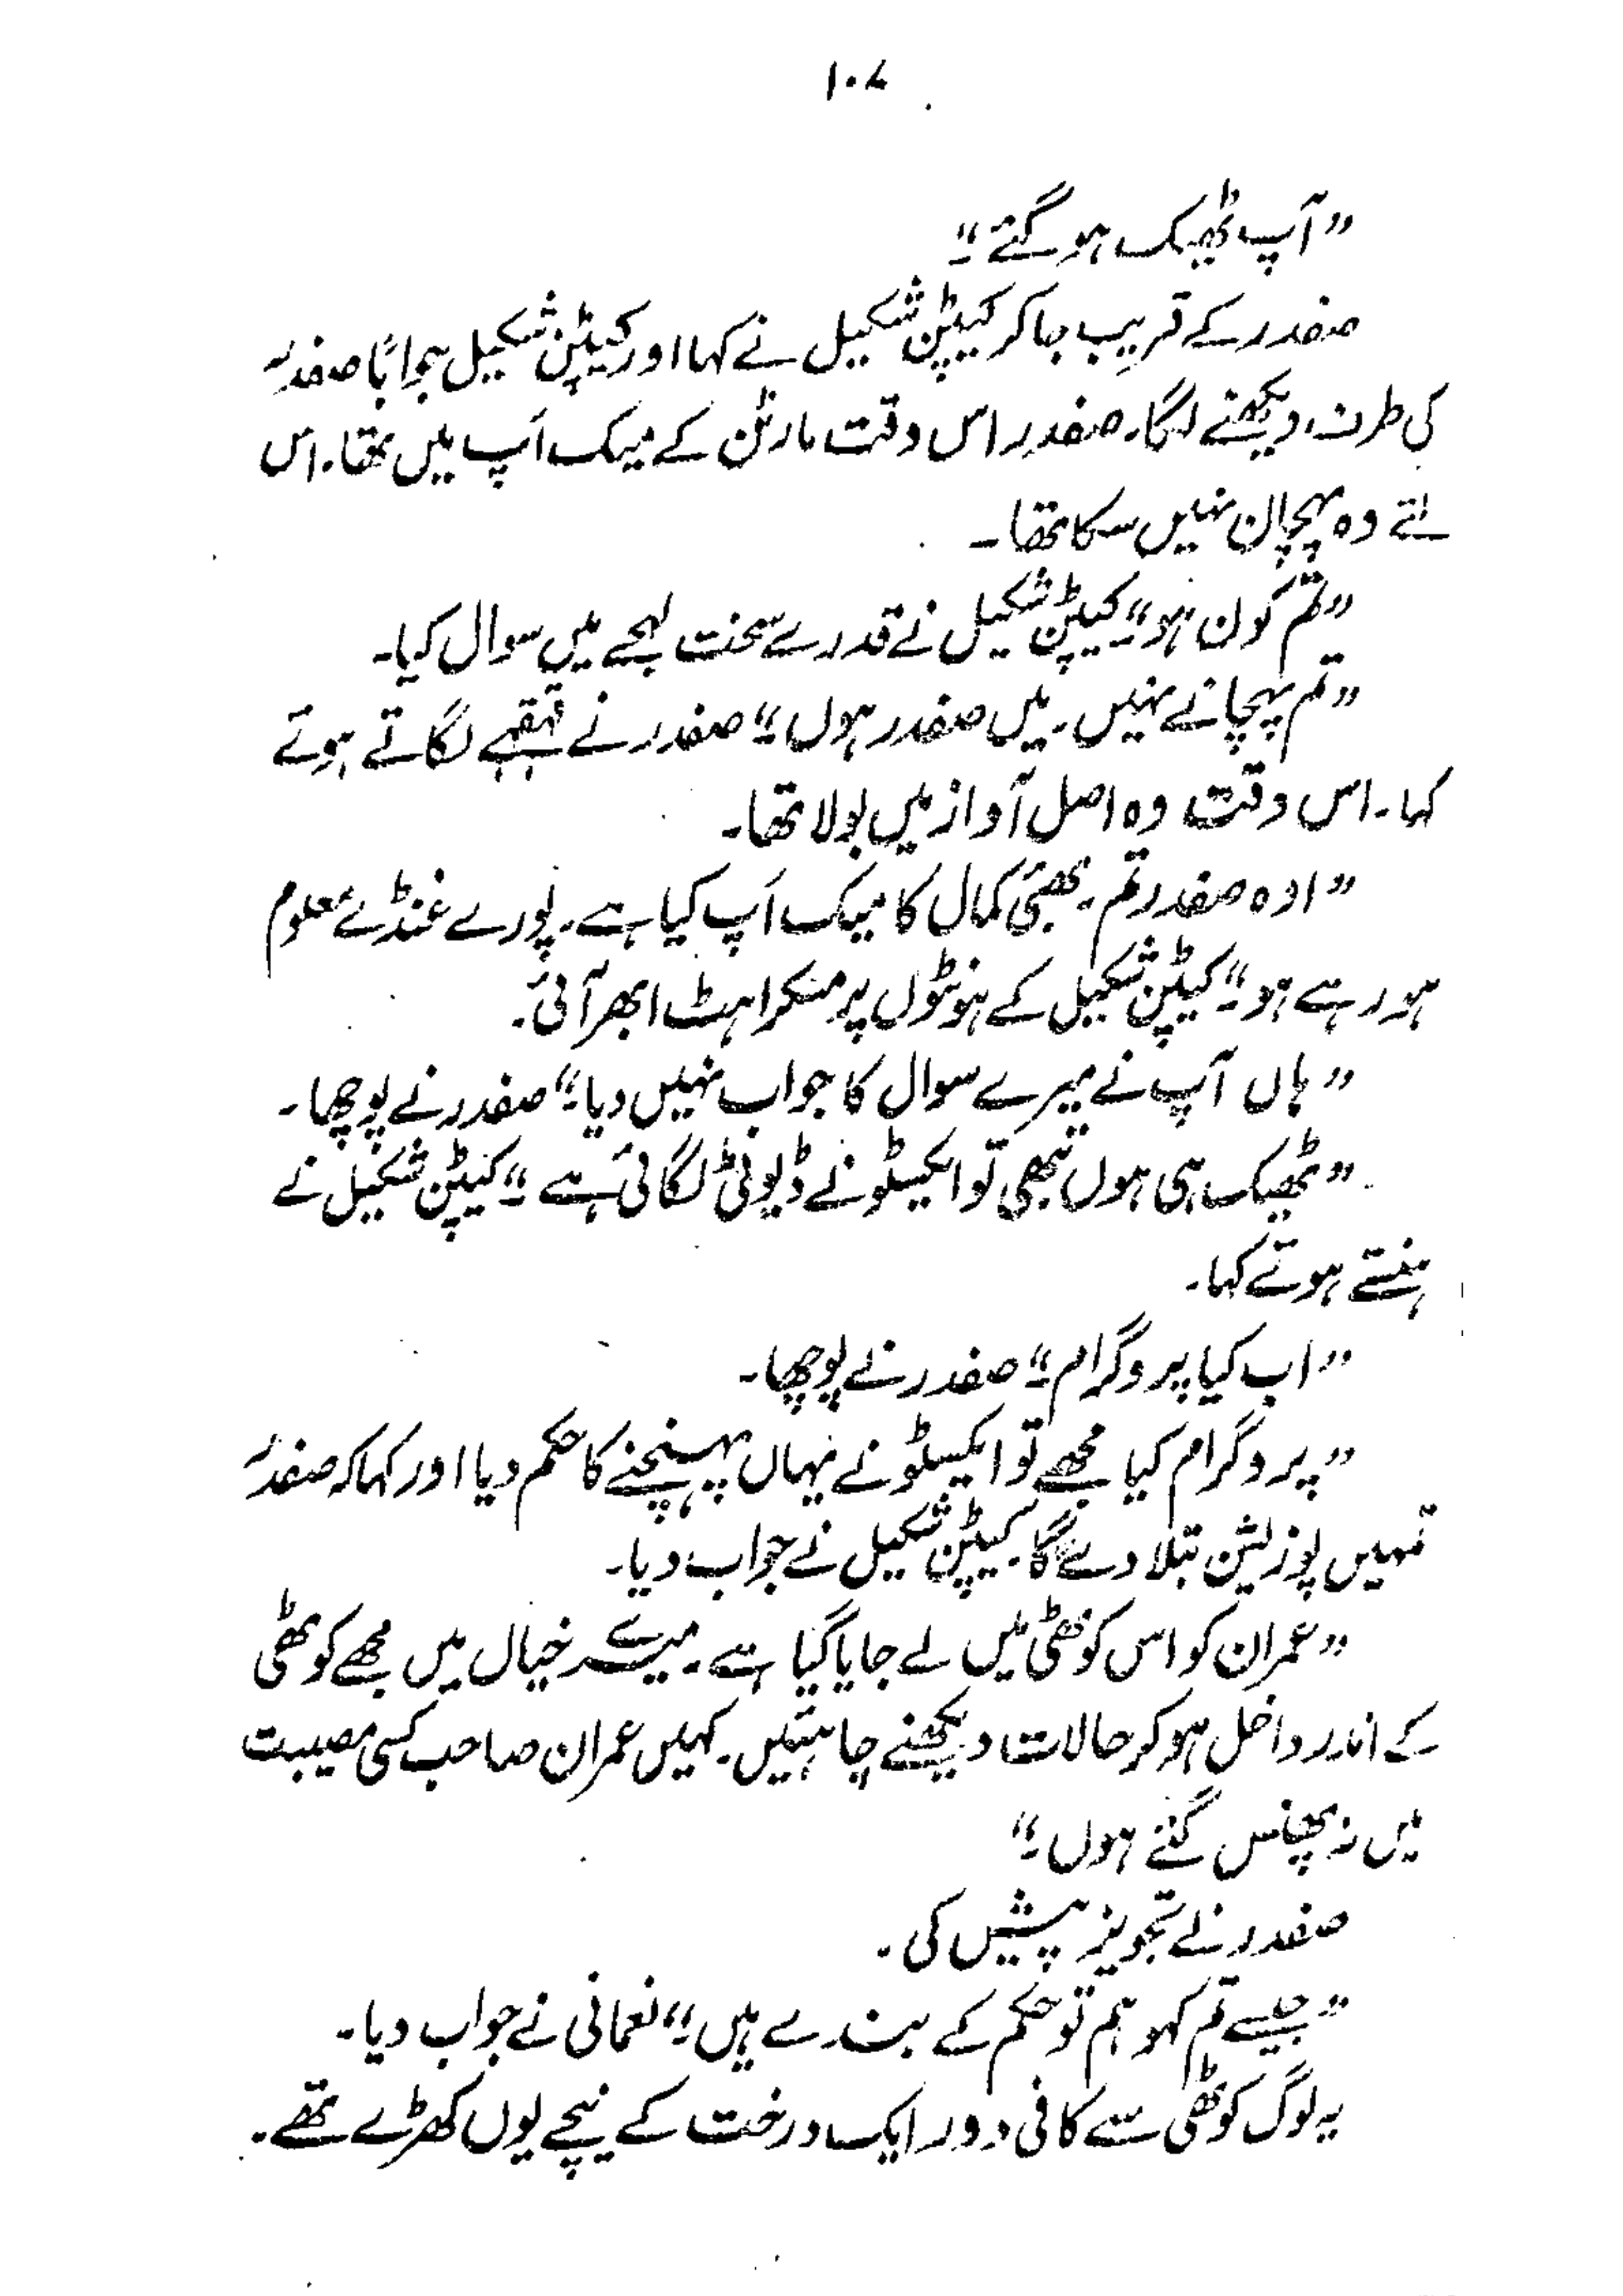 ۱۰۷
"آپ ٹھیک ہو گئے۔"
صفدر کے قریب جا کر کیپٹن شکیل نے کہا اور کیپٹن شکیل جواباً صفدر
کی طرف دیکھنے لگا۔ صفدر اس وقت مارٹن کے میک اَپ میں تھا۔ اس
لئے وہ پہچان نہیں سکا تھا۔
"تم کون ہو۔" کیپٹن شکیل نے قدرے سخت لہجے میں سوال کیا۔
"تم پہچانے نہیں۔ میں صفدر ہوں۔" صفدر نے قہقہے لگاتے ہوئے
کہا۔ اس وقت وہ اصل آواز میں بولا تھا۔
"اوہ صفدر تم۔ بھئی کمال کا میک اَپ کیا ہے۔ پورے غنڈے معلوم
ہو رہے ہو۔" کیپٹن شکیل کے ہونٹوں پر مسکراہٹ ابھر آئی۔
"ہاں آپ نے میرے سوال کا جواب نہیں دیا۔" صفدر نے پوچھا۔
"ٹھیک ہی ہوں تبھی تو ایکسٹو نے ڈیوٹی لگائی ہے۔" کیپٹن شکیل نے
ہنستے ہوئے کہا۔
"اب کیا پروگرام۔" صفدر نے پوچھا۔
"پروگرام کیا مجھے تو ایکسٹو نے یہاں پہنچنے کا حکم دیا اور کہا کہ صفدر
تمہیں پوزیشن بتلا دے گا۔ کیپٹن شکیل نے جواب دیا۔
"عمران کو اس کوٹھی میں لے جایا گیا ہے۔ میرے خیال میں مجھے کوٹھی
کے اندر داخل ہو کر حالات دیکھنے چاہئیں۔ کہیں عمران صاحب کسی مصیبت
میں نہ پھنس گئے ہوں۔"
صفدر نے تجویز پیش کی۔
"جیسے تم کہو ہم تو حکم کے بندے ہیں۔" نعمانی نے جواب دیا۔
یہ لوگ کوٹھی سے کافی دور ایک درخت کے نیچے یوں کھڑے تھے۔